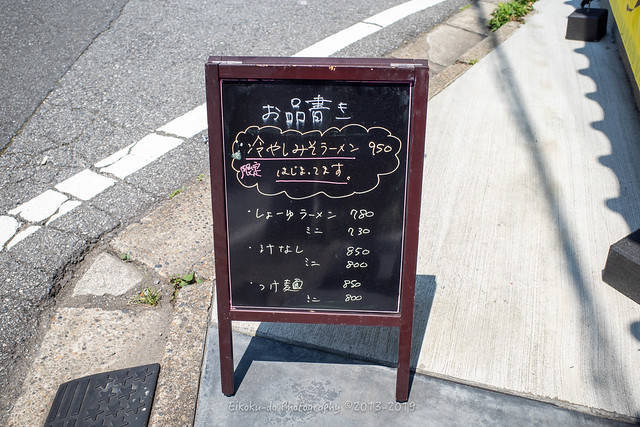 お品書き
・冷やしみそラーメン 950
限定 はじまってます。
・しょーゆラーメン 780
ミニ 730
・汁なし 850
ミニ 800
・つけ麺 850
ミニ 800
Eikoku-do Photography ©2013-2019